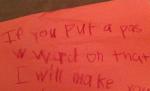 If you put a pas
w word on that
I will make you